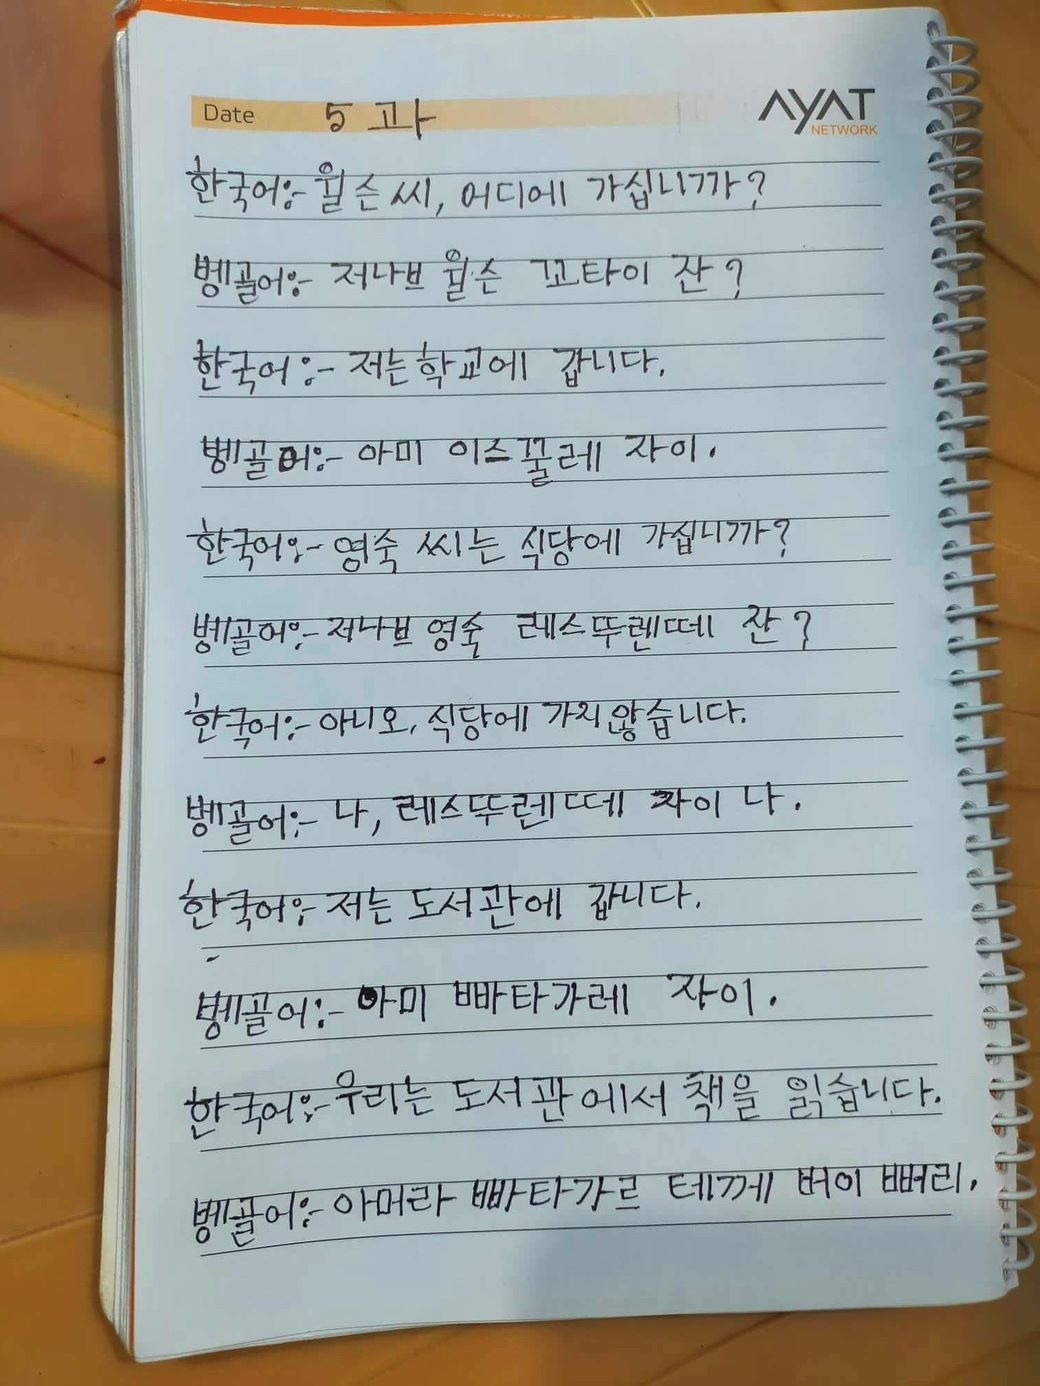 Date 5 과
AYAT
NETWORK
한국어:- 윌슨 씨, 어디에 가십니까?
벵골어:- 저나브 윌슨 꼬타이 잔?
한국어:- 저는 학교에 갑니다.
벵골어:- 아미 이스꿀레 자이.
한국어:- 영숙 씨는 식당에 가십니까?
벵골어:- 저나브 영숙 레스뚜렌떼 잔?
한국어:- 아니오, 식당에 가지 않습니다.
벵골어:- 나, 레스뚜렌떼 자이 나.
한국어:- 저는 도서관에 갑니다.
벵골어:- 아미 빠타가레 자이.
한국어:- 우리는 도서관에서 책을 읽습니다.
벵골어:- 아머라 빠타가르 테께 버이 뻐리.